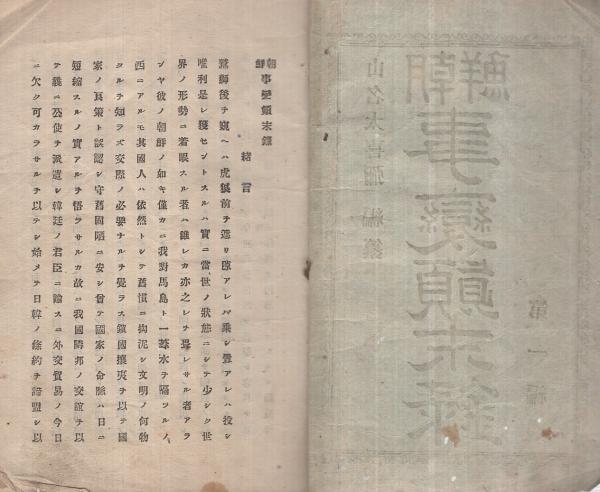 朝鮮事變顚末錄
第一編
山名大喜彌編纂
朝鮮事變顚末錄
緒言
鷲獅後チ窺ヘハ虎狼前チ遮リ隙アレバ乘シ釁アレハ投シ
唯利是レ獲セントスルハ實ニ當世ノ狀態ニシテ少シク世
界ノ形勢ニ着眼スル者ハ誰レカ亦之レチ畏レサル者アラ
ンヤ彼ノ朝鮮ノ如キ僅カニ我對馬島ト一葦水チ隔ツルノ
西ニアルモ其國人ハ依然トシテ舊慣ニ拘泥シ文明ノ何物
タルチ知ラズ交際ノ必要ナルチ覺ラス鎖國攘夷チ以テ國
家ノ良策ト誤認シ守舊固陋ニ安シ曾テ國家ノ命脈ハ日ニ
短縮スルノ實アルチ悟ラサルカ故ニ我國隣邦ノ交誼チ以
テ曩ニ公使チ派遣シ韓廷ノ君臣ニ諭スニ外交貿易ノ今日
ニ欠ク可カラサルチ以テシ始メテ日韓ノ條約チ締盟シ以